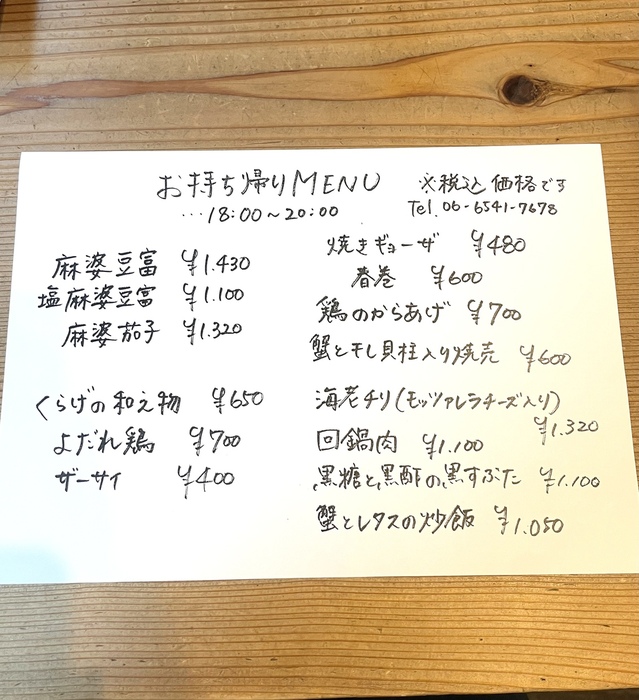 お持ち帰りMENU
…18:00～20:00
※税込価格です
Tel. 06-6541-7678
麻婆豆富 ¥1.430
塩麻婆豆富 ¥1.100
麻婆茄子 ¥1.320
くらげの和え物 ¥650
よだれ鶏 ¥700
ザーサイ ¥400
焼きギョーザ ¥480
春巻 ¥600
鶏のからあげ ¥700
蟹と干し貝柱入り焼売 ¥600
海老チリ(モッツァレラチーズ入り)
¥1.320
回鍋肉 ¥1.100
黒糖と黒酢の黒すぶた ¥1.100
蟹とレタスの炒飯 ¥1.050